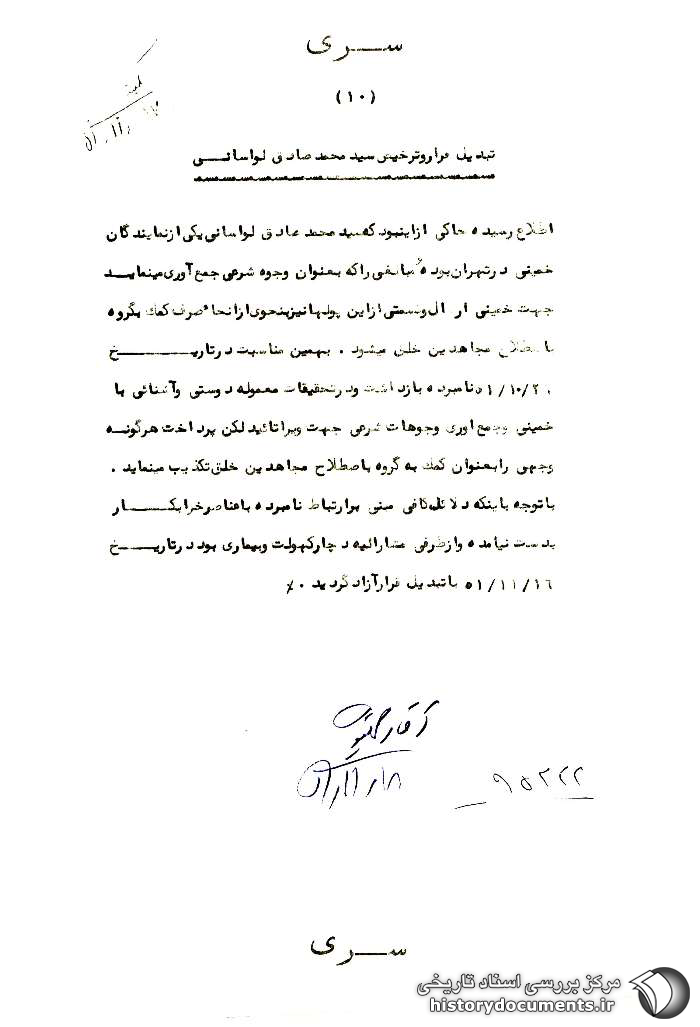 سـری
(۱۰)
تبدیل قرار و ترخیص سید محمد صادق لواسانـی
اطلاع رسیده حاکی از این بود که سید محمد صادق لواسانی یکی از نمایندگان
خمینی در تهران بوده مبالغی را که بعنوان وجوه شرعی جمع آوری مینمایـد
جهت خمینی ارسال و قسمتی از این پولها نیز بنحوی از انحاء صرف کمک بگروه
باصطلاح مجاهدین خلق میشود . بهمین مناسبت در تاریـــخ
۵۱/۱۰/۲ نامبرده بازداشت ودر تحقیقات معموله دوستی وآشنائی با
خمینی وجمع اوری وجوهات شرعی جهت ویرا تائید لکن پرداخت هرگونـه
وجهی را بعنوان کمک به گروه باصطلاح مجاهدین خلق تکذیب مینماید .
با توجه باینکه دلائل کافی مبنی بر ارتباط نامبرده با عناصر خرابکـــار
بدست نیامده واز طرفی مشارالیه دچار کهولت وبیماری بود در تاریـــخ
۵۱/۱۱/۱۶ با تبدیل قرار آزاد گردید .
۹۵۲۲۲
سـری
مرکز بررسی اسناد تاریخی
historydocuments.ir